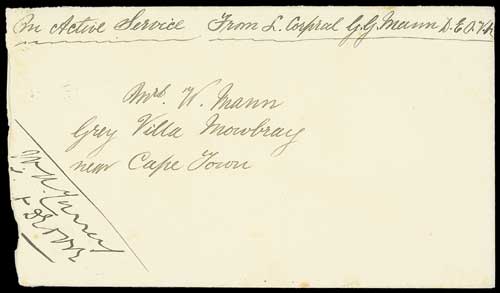 On Active Service From L. Corpral G.G. Mann D.E.O.V.R
Mrs. W. Mann
Grey Villa Mowbray
near Cape Town